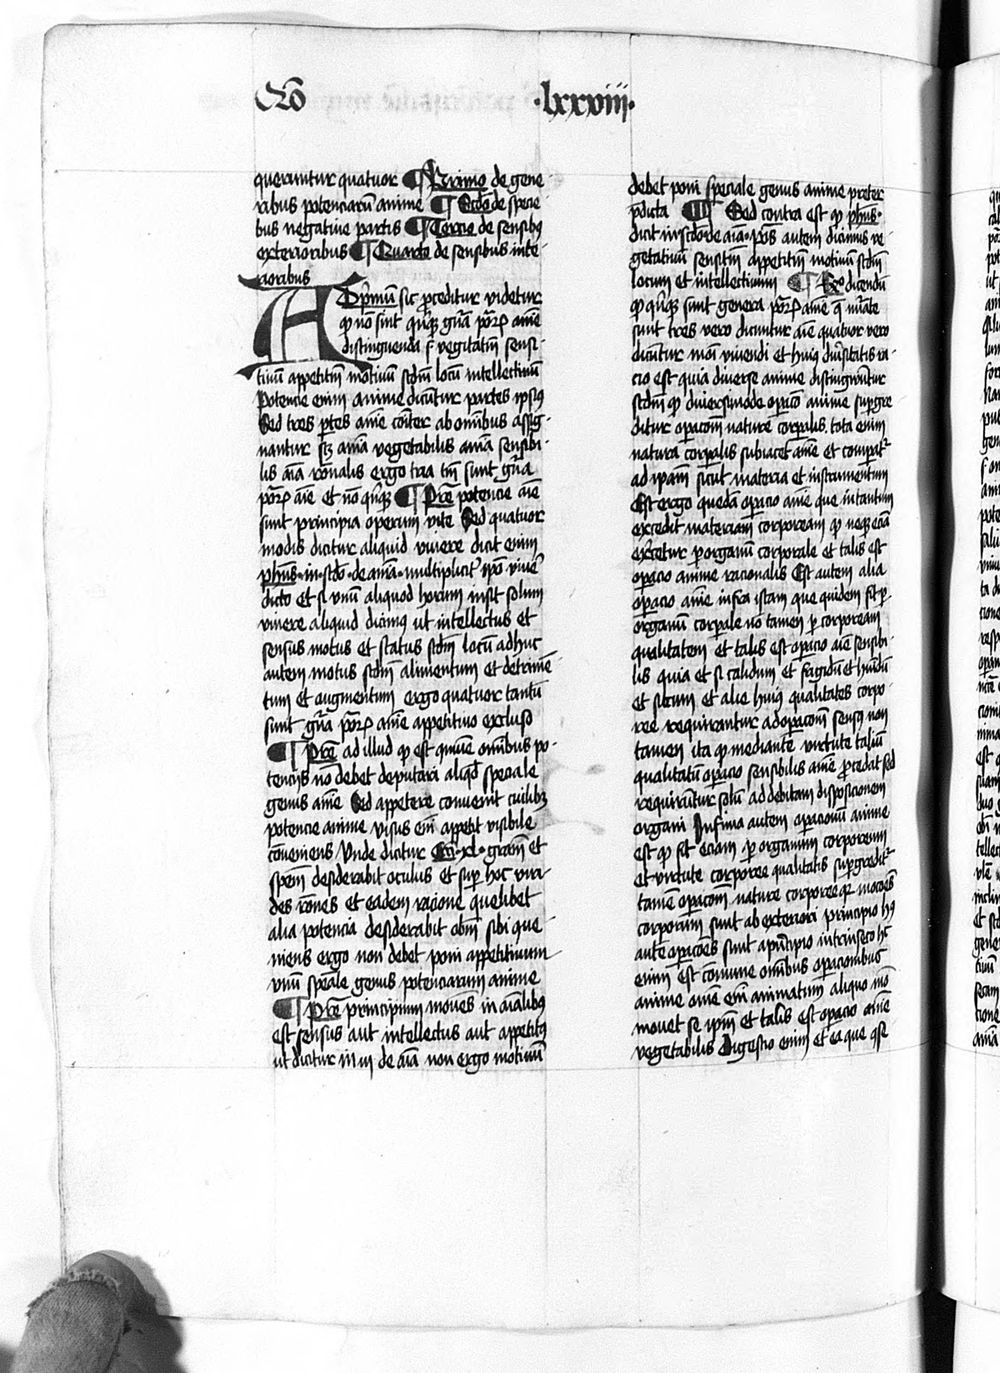 Qō ·lxxviij·
queruntur quatuor ¶ Primo de gene-
ribus potenciarū anime ¶ Scđo de specie-
bus vegatiue partis ¶ Tercio de sensibꝫ
exterioribus ¶ Quarto de sensibus inte-
rioribus
AD pͥmum sic ꝓceditur videtur
ꝙ nō sint qͥnꝗ gn̄a pōꝝ aīe
distinguenda sꝫ vegitatiū sensi-
tiuū appetitiū motiuū scđm locū intellectiuū
Potencie enim anime dicūtur partes ipsiꝰ
Sed tres ꝑtes aīe cōiter ab omnibus assig-
nantur scꝫ aīa vegetabilis aīa sensibi-
lis aīa rōnalis ergo tria tm̄ sunt gn̄a
pōꝝ aīe et nō qͥnꝗ ¶ Pret̄ea potencie aīe
sunt principia operum vite Sed quatuor
modis dicitur aliquid viuere dicit enim
ph̄us in scđo de aīa multiplicitͥ ipō viuē̄
dicto et si vnū aliquod horum insit solum
viuere aliquid dicimꝰ ut intellectus et
sensus motus et status scđm locū adhuc
autem motus scđm alimentum et detrimē-
tum et augmentum ergo quatuor tantū
sunt gn̄a pōꝝ aīe appetitiuo excluso
¶ Pret̄ea ad illud ꝙ est cōmune omībus po-
tenciis nō debet deputari aliqđ speciale
genus aīe Sed appetere conuenit cuilibꝫ
potencie anime visus em̄ appetit visibile
cōueniens Vnde dicitur Ecc̄i ·xl· graciā et
speciē desiderabit oculus et sup̄ hoc viri-
des sōnes et eadem racione quelibet
alia potencia desiderabit obm̄ sibi que-
niens ergo non debet poni appetitiuum
vnū speciale genus potenciarum anime
¶ Pret̄ea principium mouēs in aīalibꝫ
est sensus aut intellectus aut appetitꝰ
ut dicitur in iij de aīa non ergo motiuū
debet poni speciale genus anime preter
p̄dicta ¶ Sed contra est ꝙ ph̄us
dicit in scđo de aīa pōs autem dicimus ve-
getatiuū sensitiū appetitiū motiuū scđm
locum et intellectiuum ¶ Rn̄o dicendū
ꝙ qͥnꝗ sunt genera pōꝝ aīe q̄ nūate
sunt tres vero dicuntur aīe quatuor vero
dicūtur modi viuendi et huiꝰ diuͥsitatis ra-
cio est quia diuerse anime distinguntur
scđm ꝙ diuersimode opacō anime supgre-
ditur opacōm nature corꝑalis tota enim
natura corꝑalis subiacet aīe et compat̄ur
ad ipam sicut materia et instrumentum
Est ergo quedā opacio aīe que intantum
excedit materiam corpoream ꝙ neqꝫ eciā
exͨetur ꝑ organū corporale et talis est
opacio anime racionalis Est autem alia
opacio aīe infra istam que quidem fit ꝑ
organū corꝑale nō tamen ꝑ corpoream
qualitatem et talis est opacio aīe sensibi-
lis quia et si calidum et frigidū et humidū
et siccum et alie huiꝰ qualitates corpo-
ree requirantur ad opacōm sensꝰ non
tamen ita ꝙ mediante virtute talium
qualitatū opacio sensibilis aīe ꝓcedat sed
requirūtur solū ad debitam disposicionem
organi Infima autem opacionū anime
est ꝙ fit eciam ꝑ organum corporeum
et virtute corporee qualitatis supgreditͬ
tamē opacōm nature corporee qͬ mocōes
corporum sunt ab exteriori principio hꝰ
autē opacōes sunt a pͥncipio intrinseco hͦ
enim est cōmune omnibus opacionibus
anime omē em̄ animatum aliquo mō
mouet se ipm̄ et talis est opacio aīe
vegetabilis Digestio enim et ea que cōse